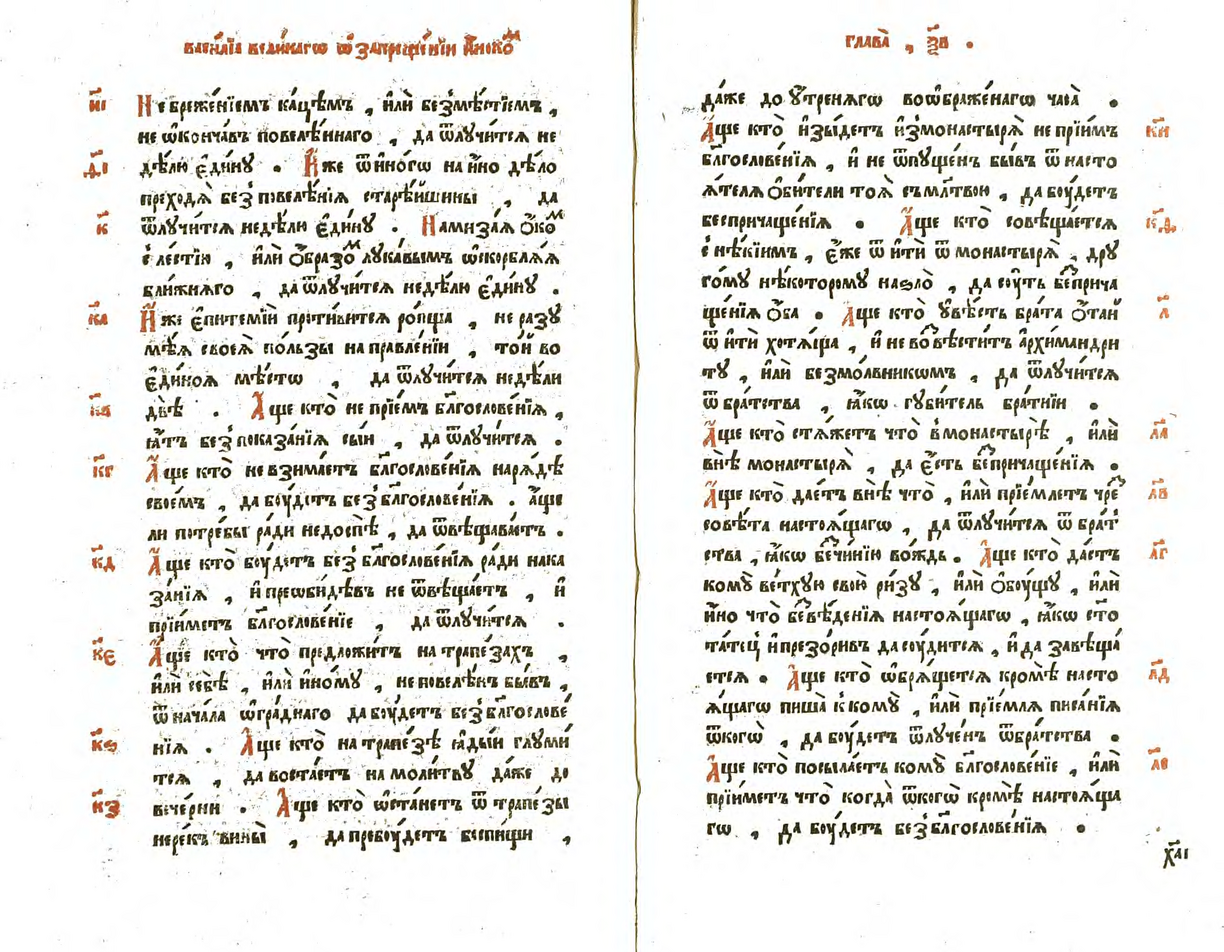 васи́лїа вели́кагѡ ѿ запреще́нїи и҆ноко́мъ
и҃і Небреже́нїемъ кацѣ́мъ , и҆лѝ безмѣ́стїемъ ,
не ѡ҆конча́въ повелѣ́ннаго , да ѿлꙋ́читсѧ не
д҃і дѣ́лю є҆ди́нꙋ . И҆́же ѿ и҆но́гѡ на и҆́но дѣ́ло
преходѧ̀ без̾ повелѣ́нїѧ старѣ́йшины , да
к҃ ѿлꙋ́читсѧ недѣ́лю є҆ди́нꙋ . Намиза́ѧ ѻ҆́комъ
с ле́стїю , и҆лѝ ѻ҆́бразомъ лꙋка́вымъ ѡ҆скорблѧ́ѧ
бли́жнѧго , да ѿлꙋ́читсѧ недѣ́лю є҆ди́нꙋ .
к҃а И҆́же є҆питемі́и проти́витсѧ ро́пща , не разꙋ
мѣ́ѧ своеѧ̀ по́льзы на правле́нїи , то́й во
є҆ди́коѧ мѣ́сто , да ѿлꙋ́читсѧ недѣ́ли
к҃в двѣ̀ . А҆́ще кто̀ не прїе́мъ бл҃гослове́нїѧ ,
ꙗ҆́тъ без̾ показа́нїѧ сы́и , да ѿлꙋ́читсѧ .
к҃г А҆́ще кто̀ не взима́етъ бл҃гослове́нїѧ нарѧ́дѣ
свое́мъ , да бꙋ́детъ без̾ бл҃гослове́нїѧ . а҆́ще
ли потре́бы ра́ди недоспѣ̀ , да ѿвѣщава́етъ .
к҃д А҆́ще кто̀ бꙋ́детъ без̾ бл҃гослове́нїѧ ра́ди нака
за́нїѧ , и҆ преѡби́дѣвъ не ѿвѣща́етъ , и҆
прїи́метъ бл҃гослове́нїе , да ѿлꙋ́читсѧ .
к҃є А҆́ще кто̀ что̀ предложи́тъ на трапе́захъ ,
и҆лѝ себѣ̀ , и҆лѝ и҆но́мꙋ , не повелѣ́нъ бы́въ ,
ѿ нача́ла ѡ҆гра́днаго да бꙋ́детъ без̾ бл҃гослове́
к҃ѕ нїѧ . А҆́ще кто̀ на трапе́зѣ ꙗ҆ды́и глꙋми́
тсѧ , да воста́етъ на моли́твꙋ да́же до
к҃з вече́рни . А҆́ще кто̀ ѡ҆ста́нетъ ѿ трапе́зы
нерекъ́ вины̀ , да пребꙋ́детъ беспи́щи ,
глава̀ , ѯ҃в .
да́же до ᲂу҆́тренѧгѡ воѡ҆браже́нагѡ часа̀ .
А҆́ще кто̀ и҆зы́детъ и҆змонастырѧ̀ не прїи́мъ к҃и
бл҃гослове́нїѧ , и҆ не ѿпꙋще́нъ бы́въ ѿ насто
ѧ́телѧ ѻ҆би́тели тоѧ̀ съ мл҃твою , да бꙋ́детъ
беспричаще́нїѧ . А҆́ще кто̀ совѣща́етсѧ к҃д҃
с нѣ́кїимъ , є҆́же ѿ и҆ти́ ѿ монастырѧ̀ , дрꙋ
го́мꙋ нѣ́которомꙋ наѕло̀ , да сꙋ́ть бесприча
ще́нїѧ ѻ҆́ба . А҆́ще кто̀ ᲂу҆вѣ́сть бра́та ѻ҆та́й л҃
ѿ и҆ти́ хотѧ́ща , и҆ не во́вѣстит̾ а҆рхимандри́
тꙋ , и҆лѝ безмо́лвникѡмъ , да ѿлꙋ́читсѧ
ѿ бра́тства , ꙗ҆́кѡ гꙋби́тель бра́тнїи .
А҆́ще кто̀ стѧ́жетъ что̀ в монастырѣ̀ , и҆лѝ л҃а
внѣ̀ монастырѧ̀ , да є҆́сть беспричаще́нїѧ .
А҆́ще кто̀ дае́тъ внѣ̀ что̀ , и҆лѝ прїе́млетъ чре́съ л҃в
совѣ́та настоѧ́щагѡ , да ѿлꙋ́читсѧ ѿ бра́т̾
ства , ꙗ҆́кѡ бесчи́нїю во́ждь . А҆́ще кто̀ дае́тъ л҃г
комꙋ̀ ве́тхꙋю свою̀ ри́зꙋ , и҆лѝ ѻ҆́бꙋщꙋ , и҆лѝ
и҆́но что̀ безвѣ́денїѧ настоѧ́щагѡ , ꙗ҆́кѡ ст҃о
та́тец и҆ презо́ривъ да сꙋ́дитсѧ , и҆ да завѣ́ща
етсѧ . А҆́ще кто̀ ѡ҆брѧ́щетсѧ кромѣ̀ насто л҃д
ѧ́щагѡ пиша̀ к комꙋ̀ , и҆лѝ прїе́млѧ писа́нїѧ
ѿкогѡ̀ , да бꙋ́детъ ѿлꙋче́нъ ѿбра́тства .
А҆́ще кто̀ посыла́етъ комꙋ̀ бл҃гослове́нїе , и҆лѝ л҃є
прїи́метъ что̀ когда̀ ѿкогѡ̀ кромѣ̀ настоѧ́ща
гѡ , да бꙋ́детъ без̾ бл҃гослове́нїѧ .
х҃аі